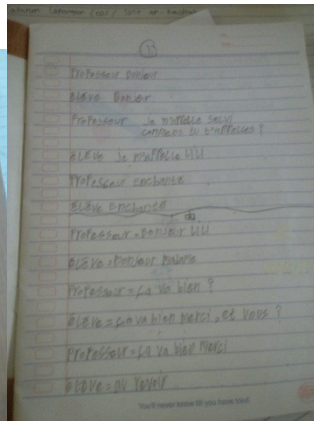 1
Professeur Bonjour
élève Bonjor
Professeur je m'appelle Selvi
comment tu t'appelles ?
élève je m'appelle Lili
Professeur enchanté
élève enchanté
Professeur = Bonjour Lili
élève = Bonjour Madame
Professeur = ça va bien ?
élève = ça va bien merci, et vous ?
Professeur = ça va bien merci
élève = au revoir
You'll never know till you have tried